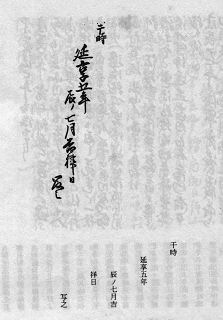 于時
延享五年
辰ノ七月吉祥日
写之
于時
延享五年
辰ノ七月吉
祥日
写之